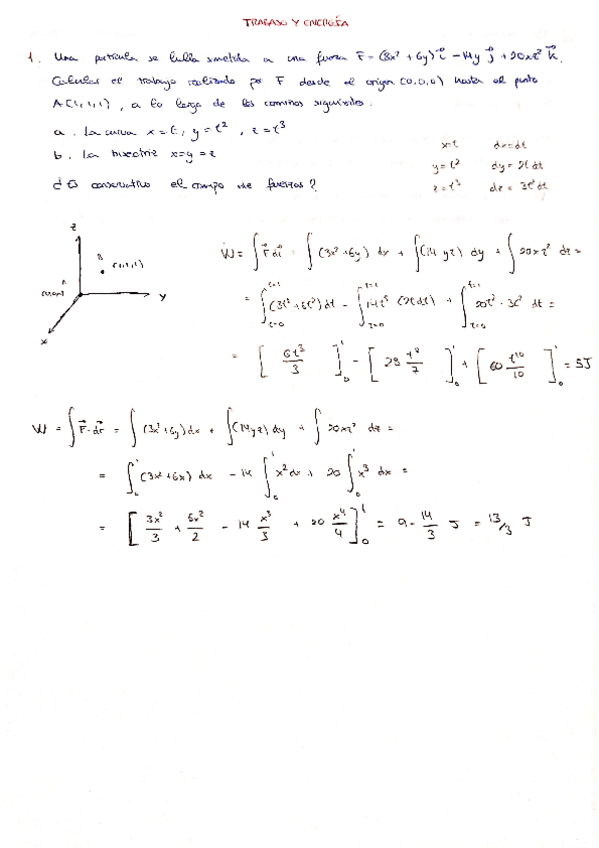 TRABAJO Y ENERGÍA
1. Una partícula se halla sometida a una fuerza F = (3x² + 6y) i⃗ - 14y j⃗ + 20xz² k⃗.
Calcular el trabajo realizado por F desde el origen (0,0,0) hasta el punto
A(1,1,1), a lo largo de los caminos siguientes.
a. La curva x = t, y = t², z = t³
b. La bisectriz x=y=z
¿Es conservativo el campo de fuerzas?
x=t dx=dt
y=t² dy=2tdt
z=t³ dz=3t²dt
z
B (1,1,1)
A
y
x
W = ∫ F⃗ dr⃗ = ∫ (3x²+6y) dx + ∫(14 yz) dy + ∫ 20xz² dz =
= ∫ (3t²+6t²)dt - ∫ 14t⁵ (2tdt) + ∫ 20t⁷ · 3t² dt =
t=1 t=1 t=1
t=0 t=0 t=0
= [ 6t³/3 ]₀¹ - [ 28 t⁷/7 ]₀¹ + [ 60 t¹⁰/10 ]₀¹ = 5J
W = ∫ F⃗·dr⃗ = ∫ (3x²+6y)dx + ∫(14yz) dy + ∫ 20xz² dz =
= ∫₀¹ (3x²+6x) dx - 14 ∫₀¹ x²dx + 20 ∫₀¹ x³ dx =
= [ 3x²/3 + 6x²/2 - 14 x³/3 + 20 x⁴/4 ]₀¹ = 9 - 14/3 J = 13/3 J